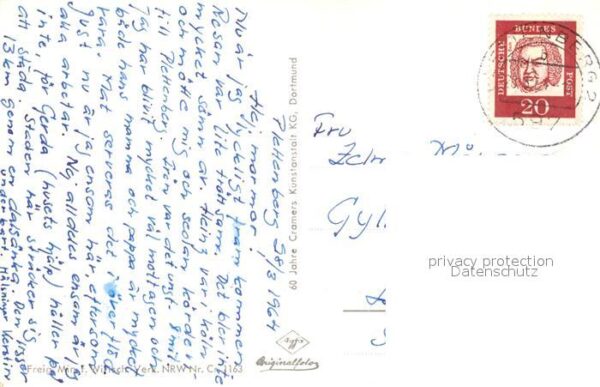 Plettenberg 28/3 1964
Hej mormor!
Nu är jag lyckligt framkommen.
Resan var lite tröttsam. Det blev inte
mycket sömn av. Heinz var i Köln
och mötte mig och sedan körde vi
till Plettenberg. Det var
Jag har blivit mycket väl mottagen och
både hans mamma och pappa är mycket
rara. Mat serveras det i överflöd.
Just nu är jag ensam här eftersom
alla arbetar. Nej, alldeles ensam är jag
inte, för Gerda (husets hjälp) håller på
att städa. Staden här sträcker sig
13 km genom en dalsänka. Den ligger
underbart. Hälsningar Kerstin
60 Jahre Cramers Kunstanstalt KG, Dortmund
Agfa
Originalfoto
Freig. Min. f. Wirtsch. Verk. NRW Nr. Co 1163
DEUTSCHE BUNDESPOST
20
Fru
privacy protection
Datenschutz